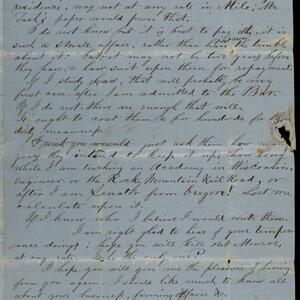 residence, was not at any rate in Milo; Mr.
Tash's paper would prove that.
I do not know but it is best to pay the, it is
such a small affair, rather than have the trouble
about it: but it may not be two years before
they have a law-suit upon them for repayment.
If I study Law, that will probably be my
first case, after I am admitted to the Bar.
If I do not, there are enough that will.
It ought to cost them a few hundreds for
dirt, meanness.
I wish you would just ask them, how many
years they intend to keep it up; how long,
while I am teaching an Academy in Wisconsin,
Engineer on the Rock Mountain Rail Road, or
after I am Senator from Oregon! Let me
calculate upon it.
If I knew who I believe I would write them.
I am right glad to hear of your temper-
ance doings; I hope you will kill out Monroe,
at any rate. Is he the only one?
I hope you will give me the pleasure of hearing
from you again. I should like much to know all
about your business, farming affairs &c.